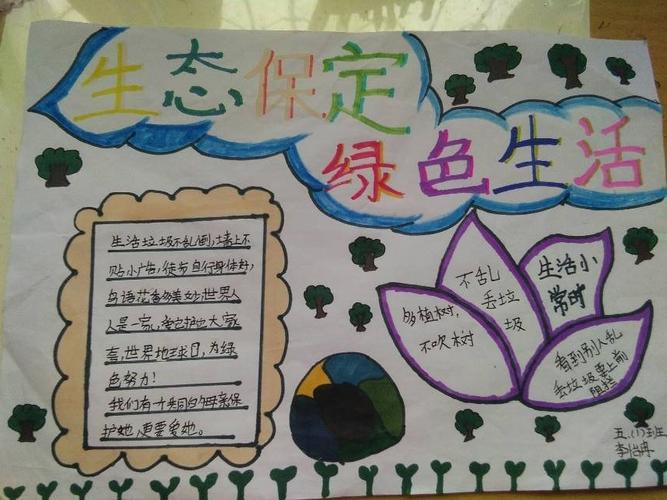 生态保定
绿色生活
生活垃圾不乱倒,墙上不
贴小广告,徒步自行身体好,
鸟语花香多美妙世界人
人是一家,爱护大家
世界地球日,为绿
色努力!
我们有一个共同的母亲保
护她,更要爱她。
多植树,
不吹树
不乱
丢垃
圾
生活小
常时
看到别人乱
丢垃圾要上前
阻挡
五.(1)班
李怡冉